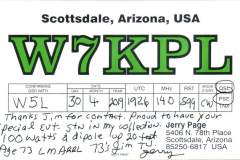 Scottsdale, Arizona, USA
W7KPL
CONFIRMING QSO WITH
W5L 30 4 2019 1926 14.0 599 CW
Thanks Jim for contact. Proud to have your
Special Evt. Stn in my collection
100 Watts & dipole up 20 feet
Age 73 LM ARRL 73's Jim TU
Jerry
Jerry Page
5406 N. 78th Place
Scottsdale, Arizona
85250-6817 USA